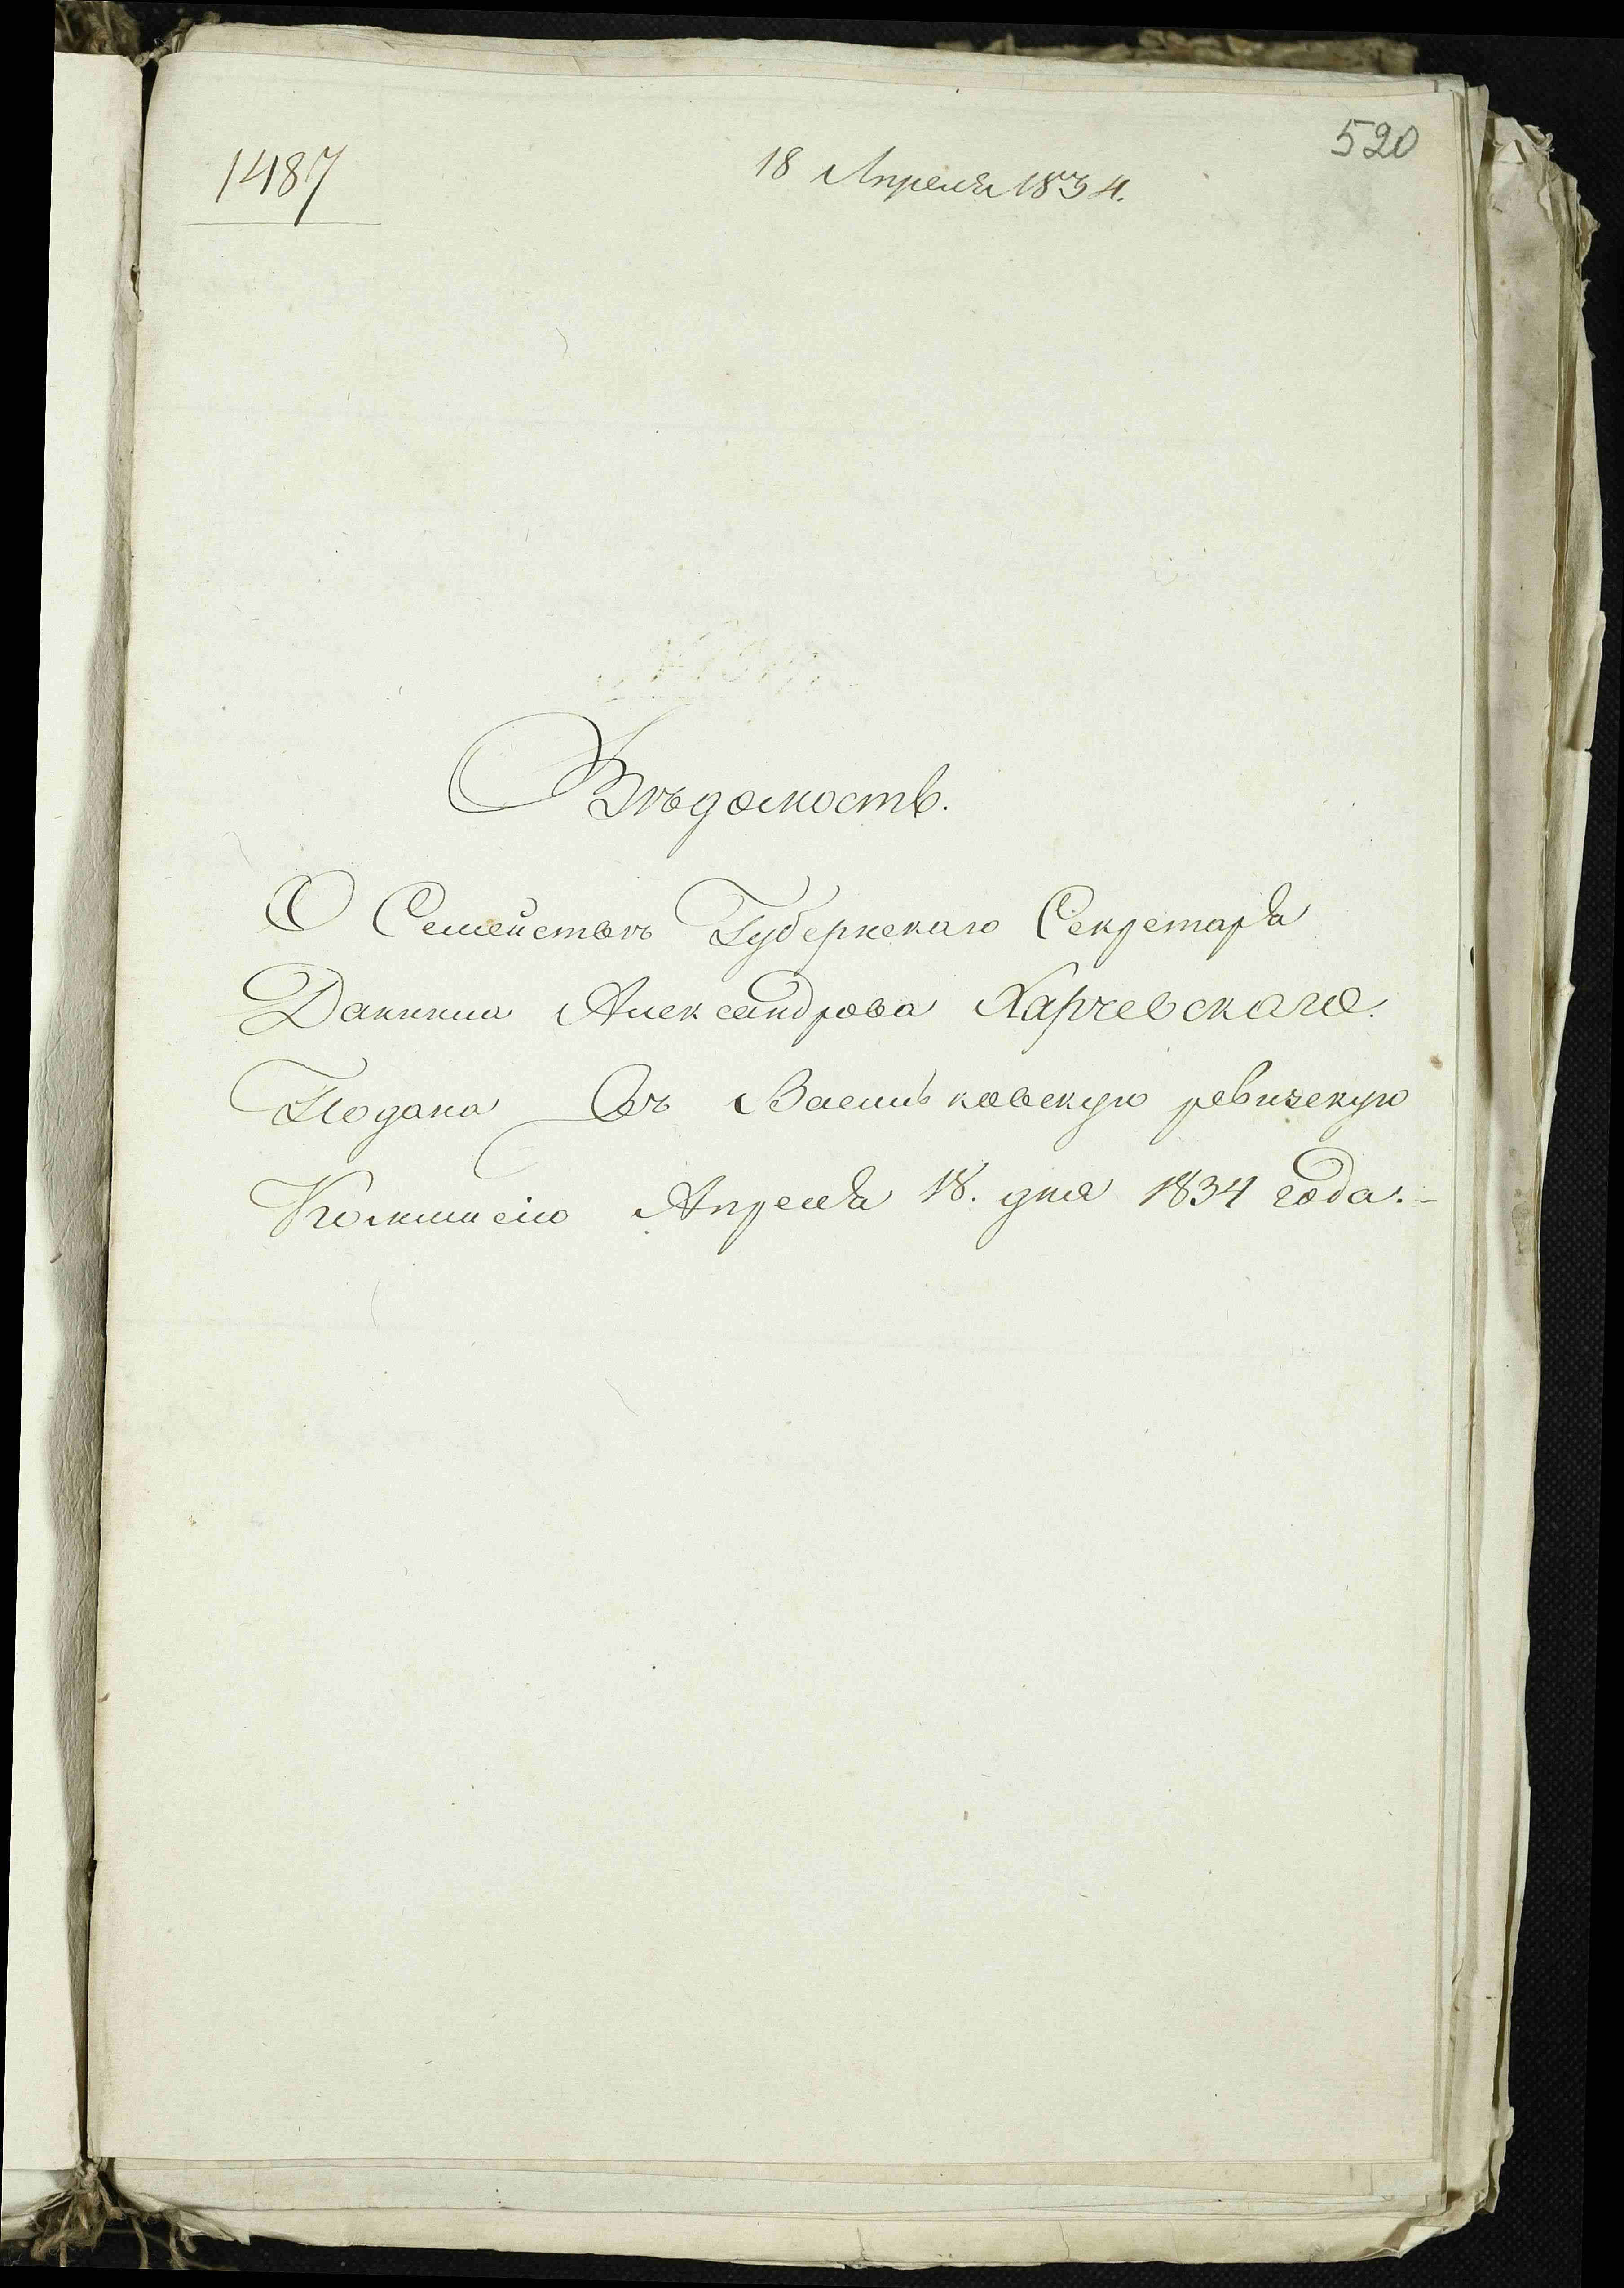 520
1487
18 Апреля 1834.
Вѣдомость.
О Семействѣ Губернскаго Секретаря
Даниила Александрова Харчевскаго.
Подана Въ Васильковскую ревизскую
Коммисію Апреля 18. дня 1834 года.-